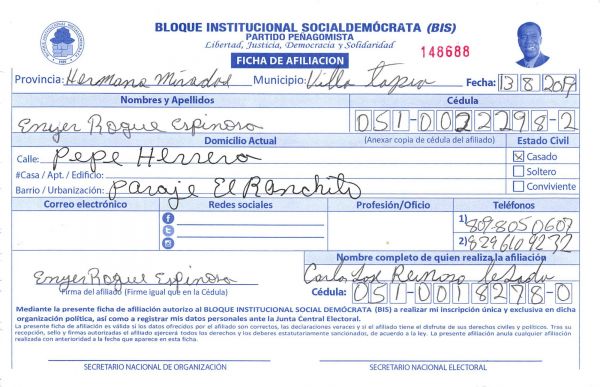 BLOQUE INSTITUCIONAL SOCIALDEMÓCRATA (BIS)
PARTIDO PEÑAGOMISTA
Libertad, Justicia, Democracia y Solidaridad
FICHA DE AFILIACION
148688
Provincia: Hermana Mirabal Municipio: Villa Tapia Fecha: 13 8 2019
Nombres y Apellidos
Cédula
Enyer Roque Espinosa
051-0022298-2
Domicilio Actual
(Anexar copia de cédula del afiliado)
Estado Civil
Calle: Pepe Herrera
Casado
#Casa / Apt. / Edificio:
Soltero
Barrio / Urbanización: Paraje El Ranchito
Conviviente
Correo electrónico
Redes sociales
Profesión/Oficio
Teléfonos
1) 809 805 0607
2) 829 610 9232
Nombre completo de quien realiza la afiliación
Enyer Roque Espinosa
Carlos José Reinoso
Firma del afiliado (Firme igual que en la Cédula)
Cédula: 051-0018278-0
Mediante la presente ficha de afiliación autorizo al BLOQUE INSTITUCIONAL SOCIAL DEMÓCRATA (BIS) a realizar mi inscripción única y exclusiva en dicha
organización política, así como a registrar mis datos personales ante la Junta Central Electoral.
La presente ficha de afiliación es válida si los datos ofrecidos por el afiliado son correctos, las declaraciones veraces y si el afiliado tiene el disfrute de sus derechos civiles y políticos. Tras su
recepción, sello y firmas autorizadas el afiliado ejercerá todos los derechos y los deberes estatutariamente sancionados, de acuerdo a la ley. La presente afiliación anula cualquier afiliación
realizada con anterioridad a la fecha que aparece en esta ficha.
SECRETARIO NACIONAL DE ORGANIZACIÓN
SECRETARIO NACIONAL ELECTORAL